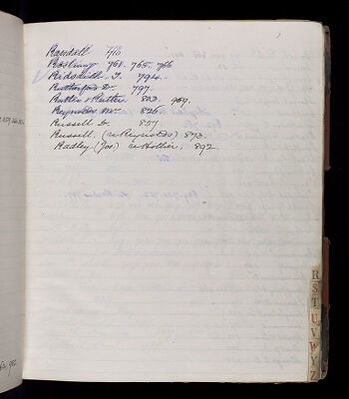 Randell 710
Rostring 761. 765. 766
Ridsdith. J. 794.
Rutherford Dr. 797.
Rutter v Rutter 823. 969.
Reynolds 826
Russell Dr. 857
Russell. (re Reynolds) 873.
Radley (Jos) re Hollier. 892
R
S
T
U
V
W
Y
Z